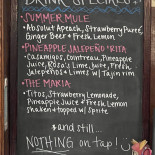 DRINK SPECIALS
• SUMMER MULE
• Absolut Apeach, Strawberry Puree,
Ginger Beer + Fresh Lemon
• PINEAPPLE JALAPEÑO 'RITA
• Casamigos, Cointreau, Pineapple
Juice, Rosa's Lime Juice, Fresh
Jalapeños + Limes w/ Tajin rim
• THE MARIA
• Titos, Strawberry Lemonade,
Pineapple Juice + Fresh Lemon
shaken + topped w/ Sprite
$ and still...
NOTHING on tap!